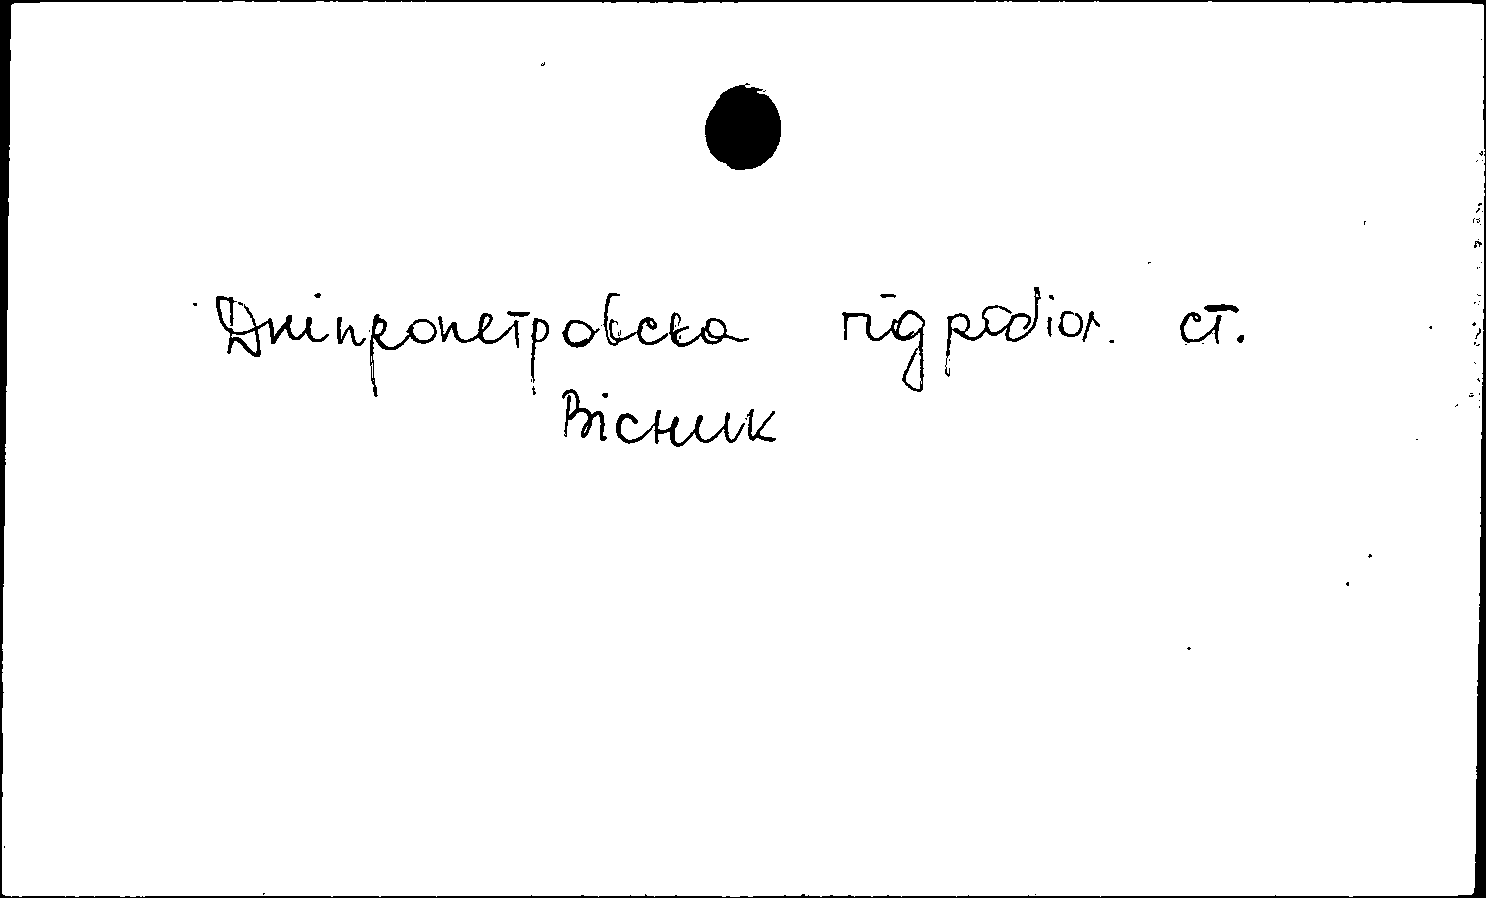 Дніпропетровска гідробіол. ст.
Вісник